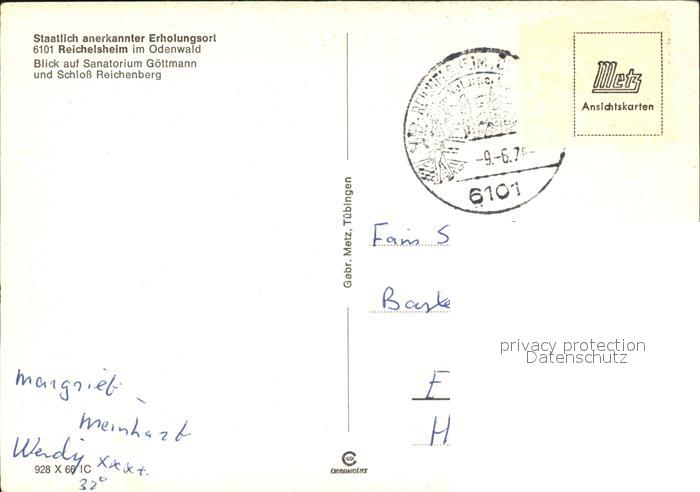 Staatlich anerkannter Erholungsort
6101 Reichelsheim im Odenwald
Blick auf Sanatorium Göttmann
und Schloß Reichenberg
Metz
Ansichtskarten
-9.-6.7
6101
Gebr. Metz, Tübingen
Fam S
E
H
privacy protection
Datenschutz
Margriet -
Meinhart
Wendy xxxx.
32°
928 X 66 IC
CHROMOLUX